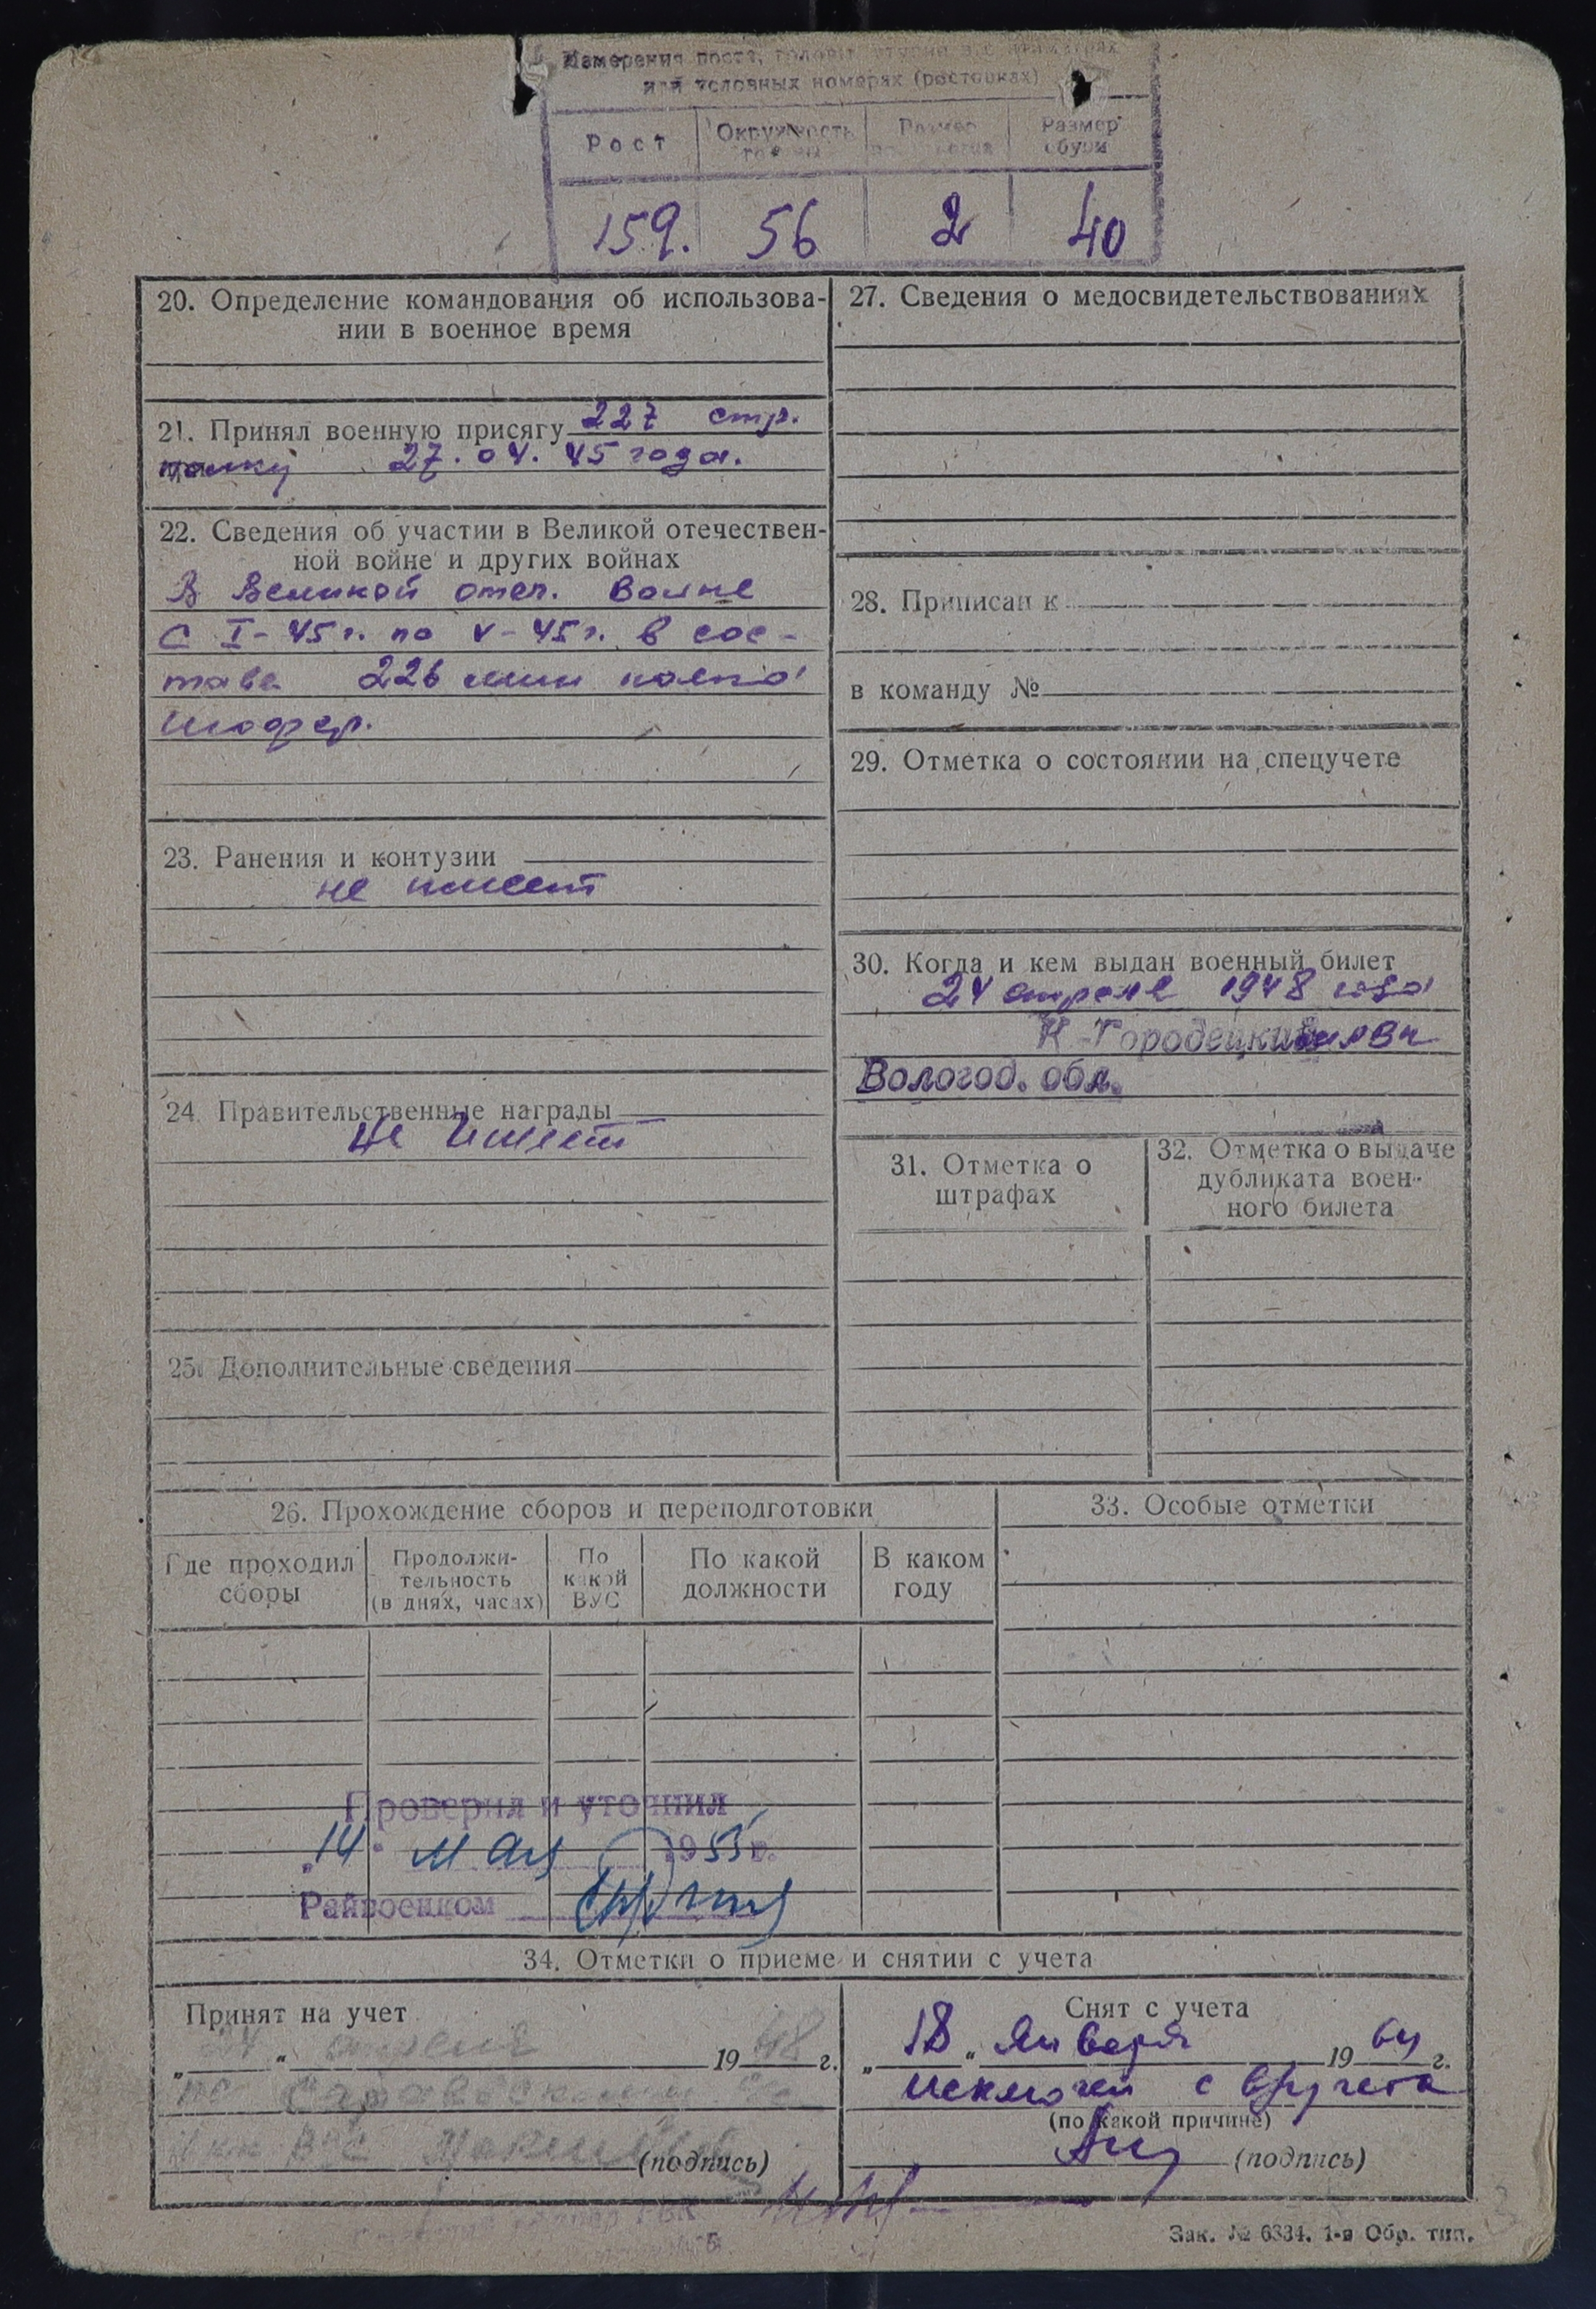 Измерения роста, головы, ступни в с нтиметрах
или условных номерах (ростовках)
Рост
Окружность головы
Размер
Размер обуви
159. 56 2 40
20. Определение командования об использова-
нии в военное время
21. Принял военную присягу 227 стр.
полку 27.04.45 года.
22. Сведения об участии в Великой отечествен-
ной войне и других войнах
В Великой отеч. войне
с I-45 г. по V-45 г. в сос-
таве 226 мин полка
шофер.
23. Ранения и контузии
не имеет
24. Правительственные награды
не имеет
25. Дополнительные сведения
27. Сведения о медосвидетельствованиях
28. Приписан к
в команду №
29. Отметка о состоянии на спецучете
30. Когда и кем выдан военный билет
24 апреля 1948 года
К-Городецким РВК
Вологод. обл.
31. Отметка о
штрафах
32. Отметка о выдаче
дубликата воен-
ного билета
26. Прохождение сборов и переподготовки
Где проходил
сборы
Продолжи-
тельность
(в днях, часах)
По
какой
ВУС
По какой
должности
В каком
году
33. Особые отметки
Проверил и уточнил
„14" мая 1955 г.
Райвоенком
34. Отметки о приеме и снятии с учета
Принят на учет
„24" апреля 1948 г.
(подпись)
Снят с учета
„18" января 1964 г.
исключен с в/учета
(по какой причине)
(подпись)
Зак. № 6334. 1-я Обр. тип.